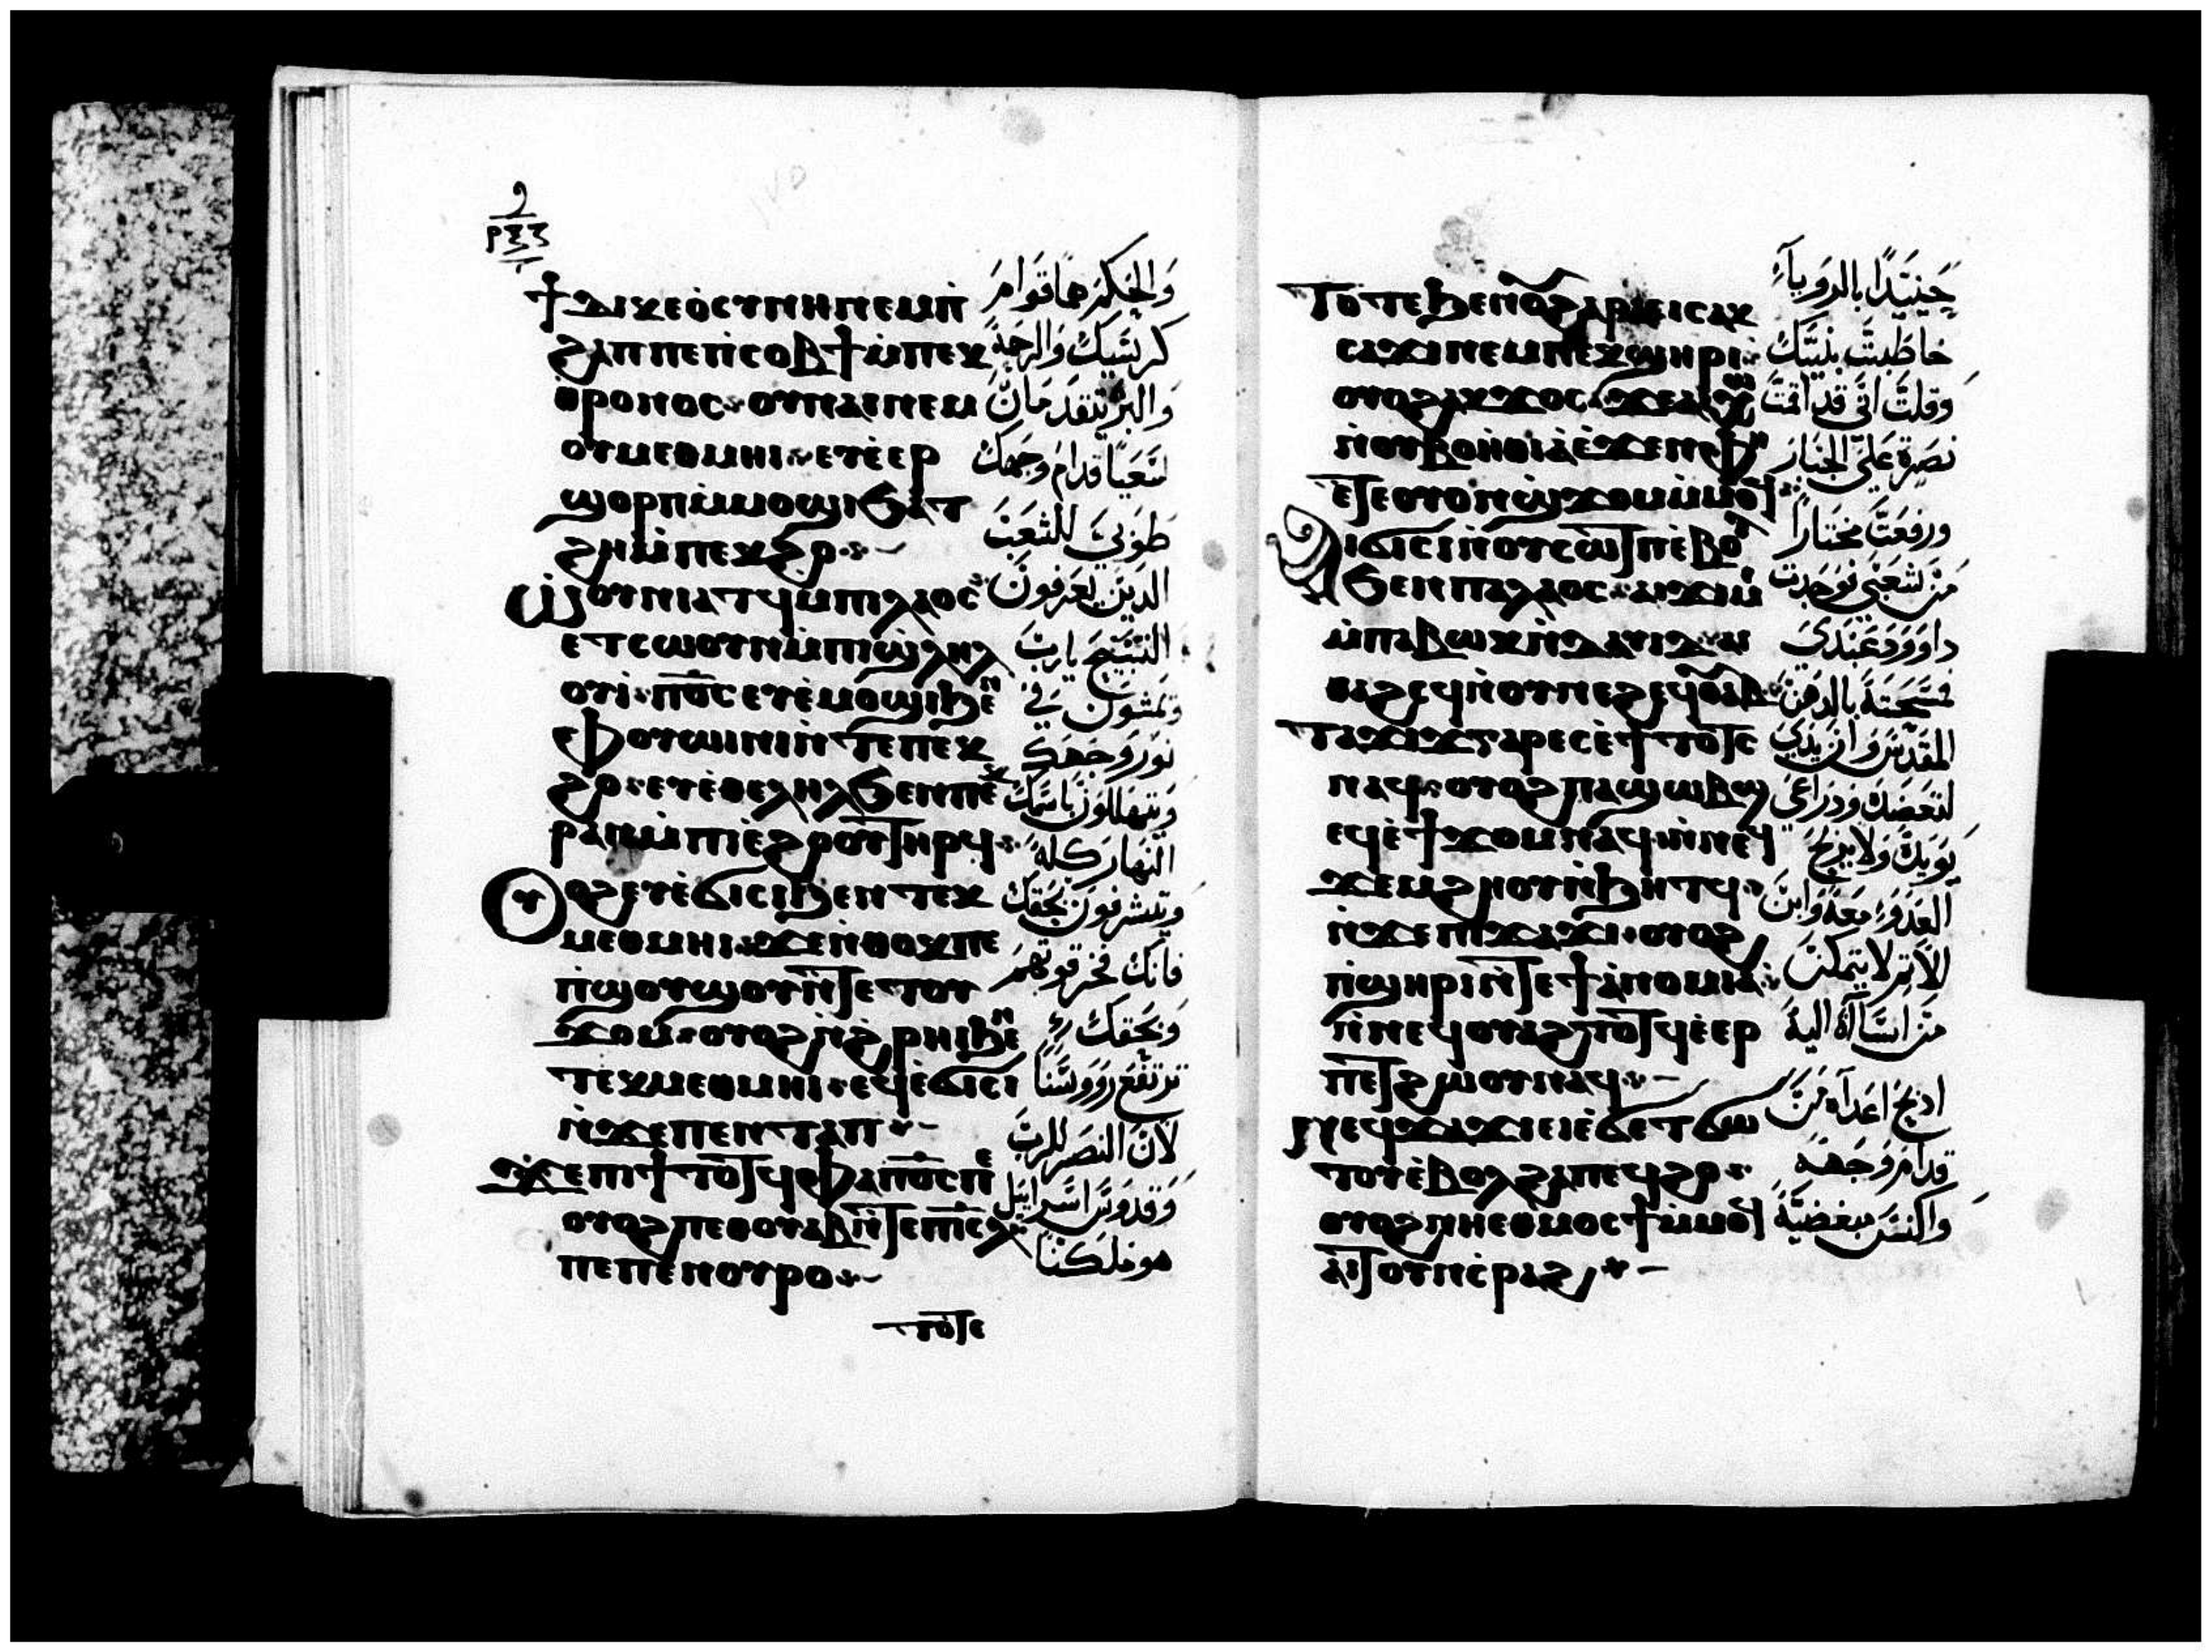 ⲣⲝⲍ
ϯⲇⲓⲕⲉⲟⲥⲩⲛⲏ ⲛⲉⲙ ⲡ̀
ϩⲁⲡ ⲡⲉ ⲡ̀ⲥⲟⲃϯ ⲙ̀ⲡⲉⲕ
ⲑⲣⲟⲛⲟⲥ ⲟⲩⲛⲁⲓ ⲛⲉⲙ
ⲟⲩⲙⲉⲑⲙⲏⲓ ⲉⲩⲉ̀ⲉⲣ
ϣⲟⲣⲡ ⲙ̀ⲙⲟϣⲓ ϧⲁⲧ
ϩⲏ ⲙ̀ⲡⲉⲕϩⲟ
ⲱⲟⲩⲛⲓⲁⲧϥ ⲙ̀ⲡⲓⲗⲁⲟⲥ
ⲉⲧⲥⲱⲟⲩⲛ ⲙ̀ⲡⲓϣ̀ⲗⲏⲗ
ⲟⲩⲓ̀ ⲡⲟ̅ⲥ̅ ⲉⲩⲉ̀ⲙⲟϣⲓ ϧⲉⲛ
ⲫⲟⲩⲱⲓⲛⲓ ⲛ̀ⲧⲉ ⲡⲉⲕ
ϩⲟ ⲉⲩⲉ̀ⲑⲉⲗⲏⲗ ϧⲉⲛ ⲡⲉⲕ
ⲣⲁⲛ ⲙ̀ⲡⲓⲉ̀ϩⲟⲟⲩ ⲧⲏⲣϥ
ⲟⲩⲟϩ ⲉⲩⲉ̀ϭⲓⲥⲓ ϧⲉⲛ ⲧⲉⲕ
ⲙⲉⲑⲙⲏⲓ ϫⲉ ⲛ̀ⲑⲟⲕ ⲡⲉ
ⲡ̀ϣⲟⲩϣⲟⲩ ⲛ̀ⲧⲉ ⲧⲟⲩ
ϫⲟⲙ ⲟⲩⲟϩ ⲛ̀ϩ̀ⲣⲏⲓ ϧⲉⲛ
ⲧⲉⲕⲙⲉⲑⲙⲏⲓ ⲉϥⲉ̀ϭⲓⲥⲓ
ⲛ̀ϫⲉ ⲡⲉⲛⲧⲁⲡ
ϫⲉ ⲡⲓϯⲧⲟⲧϥ ⲫⲁ ⲡⲟ̅ⲥ̅ ⲡⲉ
ⲟⲩⲟϩ ⲡⲉⲑⲟⲩⲁⲃ ⲛ̀ⲧⲉ ⲡⲓ̅ⲥ̅ⲗ̅
ⲡⲉ ⲡⲉⲛⲟⲩⲣⲟ
ⲧⲟⲧⲉ
والحكم هما قوام
كرسيك والرحمة
والبر يتقدمان
لتعيا قدام وجهك
طوبي للشعب
الدين يعرفون
التسبيح يارب
ويمشون في
نور وجهك
ويتهللون باسمك
النهار كله
ويتشرفون بحقك
فانك فخر قوتهم
وبحقك
ترتفع رووسنا
لان النصر للرب
وقدوس اسراييل
هو ملكنا
ⲧⲟⲧⲉ ϧⲉⲛ ⲟⲩϩⲟⲣⲁⲙⲉⲓⲥ ⲁⲕ
ⲥⲁϫⲓ ⲛⲉⲙ ⲛⲉⲕϣⲏⲣⲓ
ⲟⲩⲟϩ ⲁⲕϫⲟⲥ ϫⲉ ⲁⲓⲭⲱ
ⲛ̀ⲟⲩⲃⲟⲏ̀ⲑⲓⲁ ⲉ̀ϫⲉⲛ ⲫⲏ
ⲉⲧⲉ ⲟⲩⲟⲛ ϣ̀ϫⲟⲙ ⲙ̀ⲙⲟϥ
ⲁⲓϭⲓⲥⲓ ⲛ̀ⲟⲩⲥⲱⲧⲡ ⲉ̀ⲃⲟⲗ
ϧⲉⲛ ⲡⲁⲗⲁⲟⲥ ⲁⲓϫⲓⲙⲓ
ⲙ̀ⲡⲁⲃⲱⲕ ⲛ̀ⲇⲁⲩⲓⲇ ⲁⲓ
ⲑⲁϩⲥϥ ⲛ̀ⲟⲩⲛⲉϩ ⲉϥⲟⲩⲁⲃ
ⲧⲁϫⲓϫ ⲅⲁⲣ ⲉⲥⲉ̀ϯⲧⲟⲧⲥ
ⲛⲁϥ ⲟⲩⲟϩ ⲡⲁϣⲱⲃϣ
ⲉϥⲉ̀ϯϫⲟⲙ ⲛⲁϥ ⲛ̀ⲛⲉϥ
ϫⲉⲙϩⲏⲟⲩ ⲛ̀ϧⲏⲧϥ
ⲛ̀ϫⲉ ⲡⲓϫⲁϫⲓ ⲟⲩⲟϩ
ⲡ̀ϣⲏⲣⲓ ⲛ̀ⲧⲉ ϯⲁ̀ⲛⲟⲙⲓⲁ
ⲛ̀ⲛⲉϥⲟⲩⲁϩⲧⲟⲧϥ ⲉ̀ⲉⲣ
ⲡⲉⲧϩⲱⲟⲩ ⲛⲁϥ
ⲛⲉϥϫⲁϫⲓ ⲉⲓⲉ̀ϭⲉⲧϭⲱ
ⲧⲟⲩ ⲉ̀ⲃⲟⲗ ϩⲁ ⲡⲉϥϩⲟ
ⲟⲩⲟϩ ⲛⲏⲉⲑⲙⲟⲥϯ ⲙ̀ⲙⲟϥ
ⲁⲓⲧⲟⲩ ⲛ̀ⲥⲣⲁϩ
حينيدا بالرويا
خاطبت بنيك
وقلت اني قد اقمت
نصرة علي الجبار
ورفعت مختارا
من شعبي ووجدت
داوود عبدي
مسحته بالدهن
المقدس وان يدي
لتعضده ودراعي
يويده ولا يربح
العدو معه وابن
الاتم لا يتمكن
من اساة اليه
ادبح اعداه من
قدام وجهه
واكسر مبغضيه